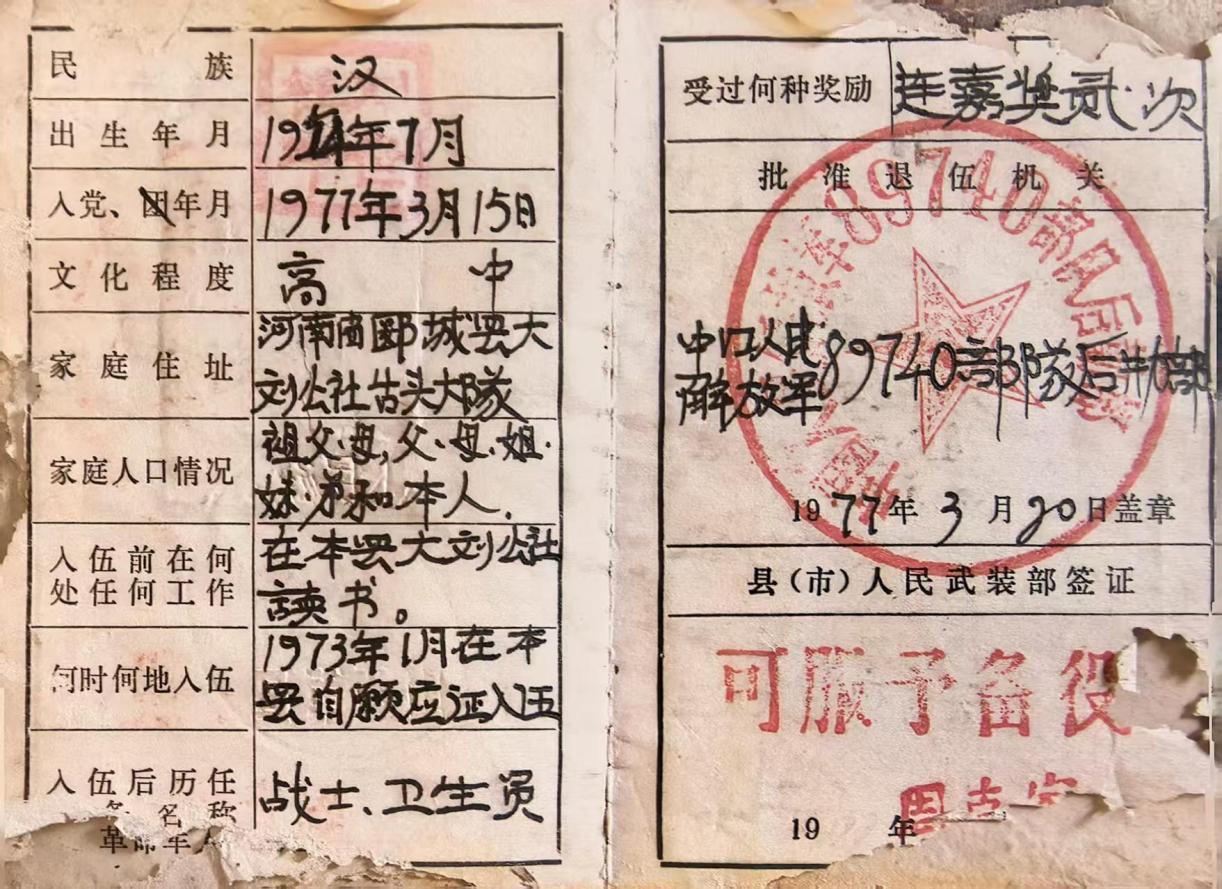 民族 汉
出生年月 19 年7月
入党、团年月 1977年3月15日
文化程度 高中
家庭住址 河南省郾城县大
刘公社占头大隊
家庭人口情况 祖父·母,父·母·姐·
妹·弟和本人.
入伍前在何 在本县大刘公社
处任何工作 读书。
何时何地入伍 1973年1月在本
县自愿应证入伍
入伍后历任 战士、卫生员
名称
革命军
受过何种奖励 连嘉奖贰次
批准退伍机关
89740部队后
中国人民
解放军89740部隊后勤部
1977年3月20日盖章
县(市)人民武装部签证
可服予备役
19 年